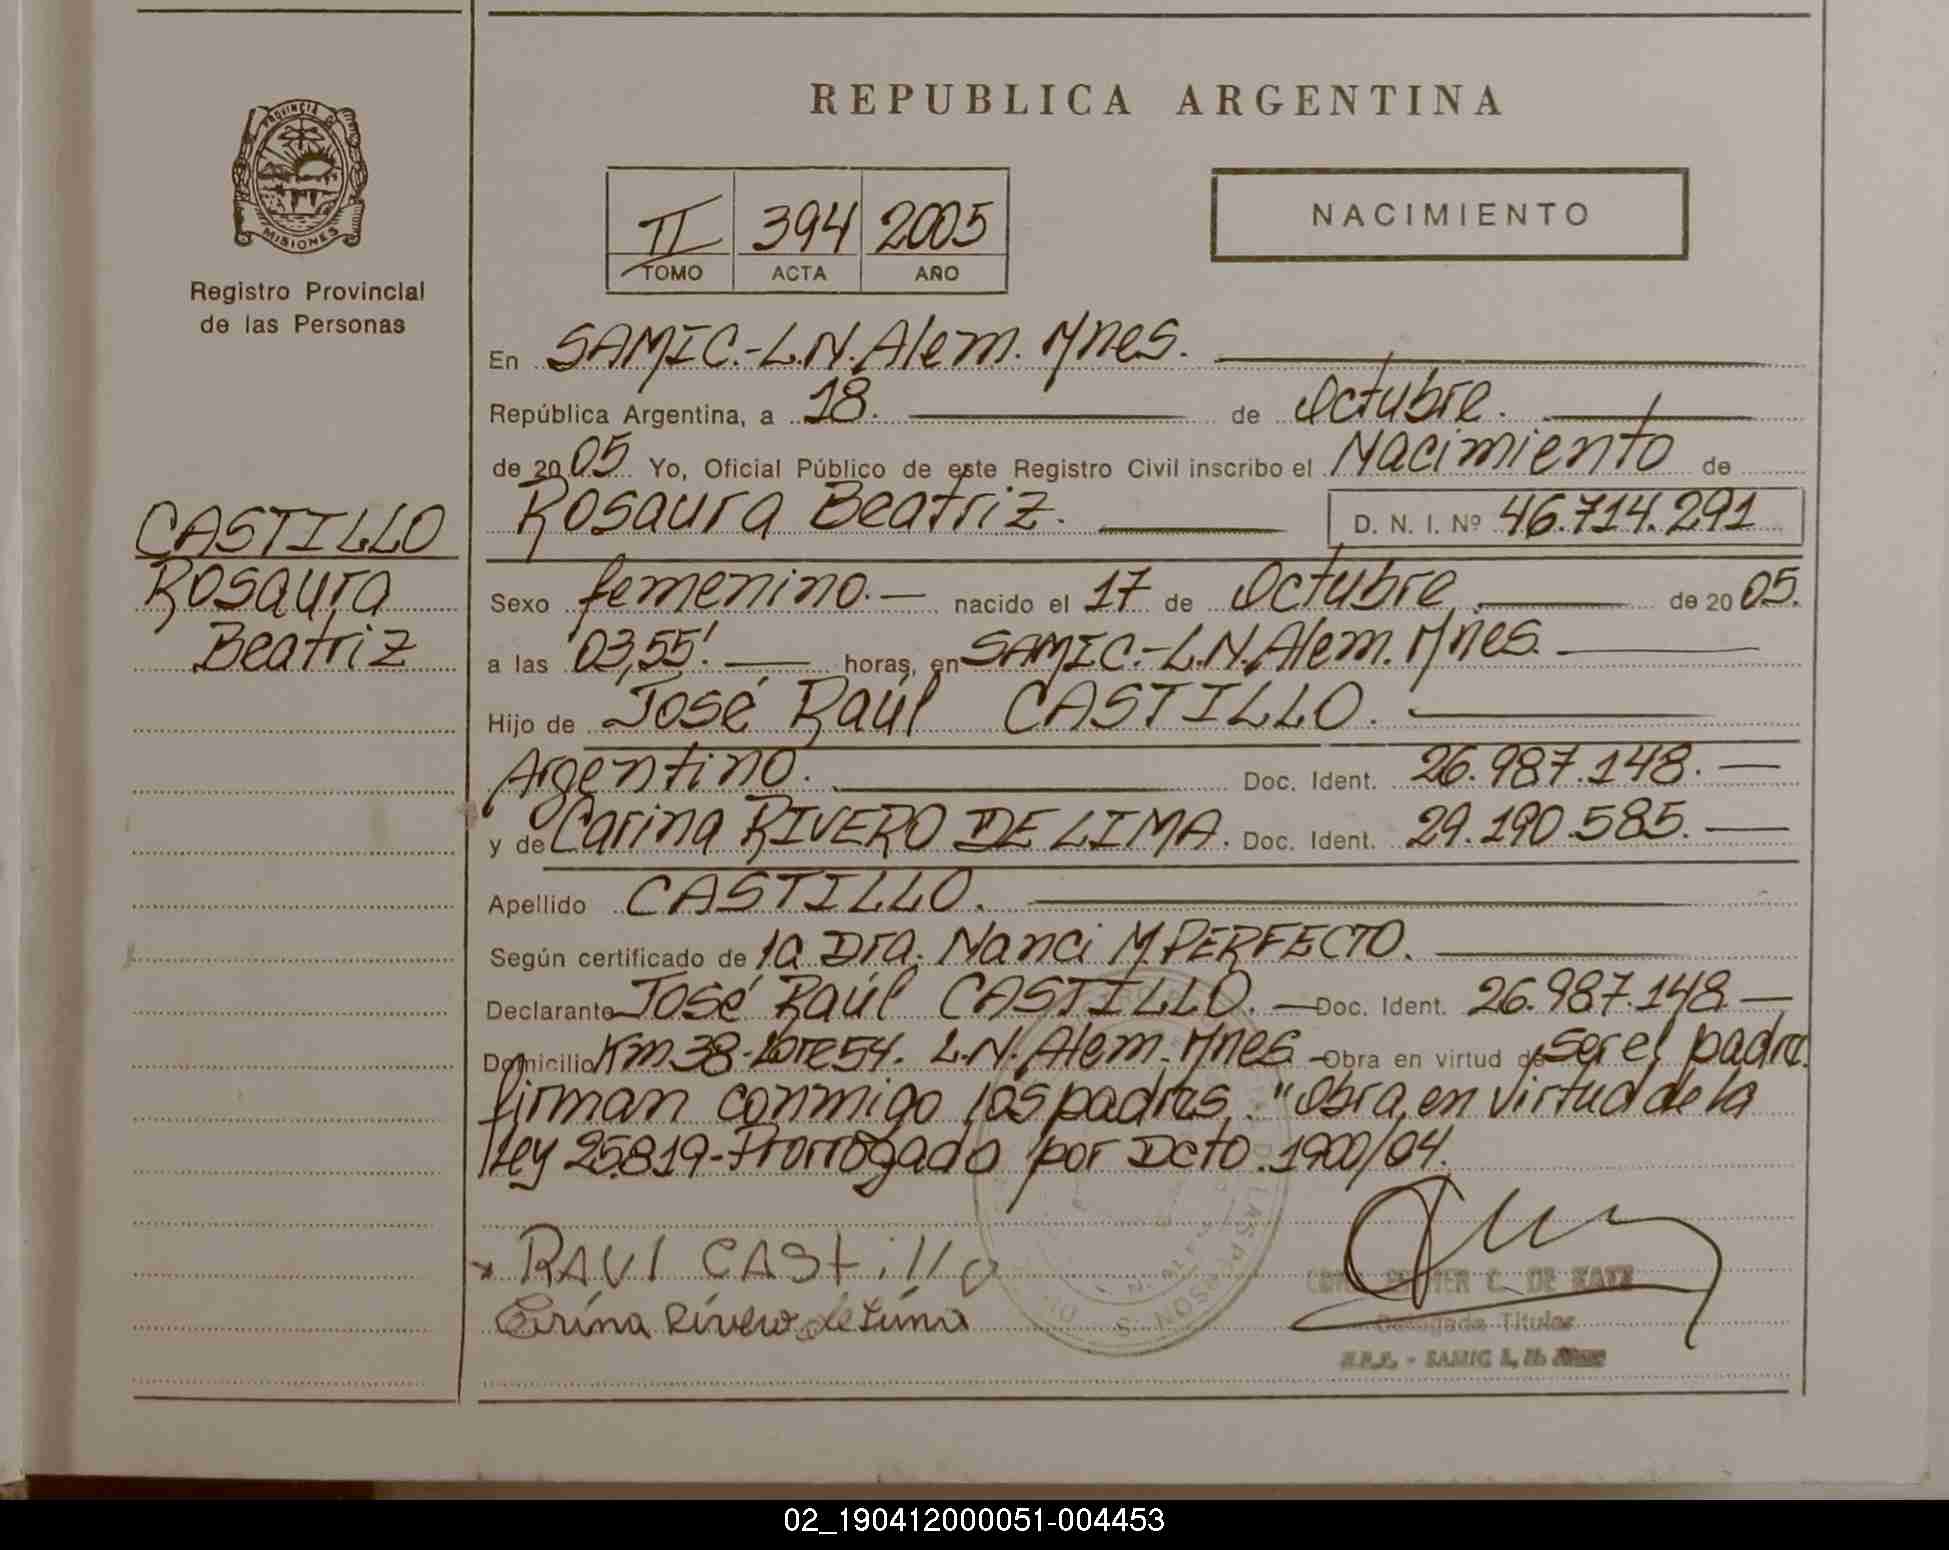 REPUBLICA ARGENTINA
PROVINCIA DE
MISIONES
Registro Provincial
de las Personas
II 394 2005
TOMO ACTA AÑO
NACIMIENTO
En SAMIC.-L.N.Alem. Mnes.
República Argentina, a 18. de Octubre.
de 2005 Yo, Oficial Público de este Registro Civil inscribo el Nacimiento de
Rosaura Beatriz. D. N. I. Nº 46.714.291
CASTILLO
Rosaura
Beatriz
Sexo femenino.- nacido el 17 de Octubre de 2005.
a las 03,55' horas, en SAMIC.-L.N.Alem. Mnes.
Hijo de José Raúl CASTILLO.
Argentino. Doc. Ident. 26.987.148.
y de Carina RIVERO DE LIMA. Doc. Ident. 29.190.585.
Apellido CASTILLO.
Según certificado de la Dra. Nanci M PERFECTO.
Declarante José Raúl CASTILLO. - Doc. Ident. 26.987.148
Domicilio Km38-Lote54. L.N. Alem. Mnes - Obra en virtud de ser el padre.
firman conmigo los padres. "Obra en virtud de la
ley 25.819-Prorrogado por Dcto. 1900/04.
RAUl CAStillo
Carina Rivero de Lima
DE KAYE
Delegada Titular
02_190412000051-004453